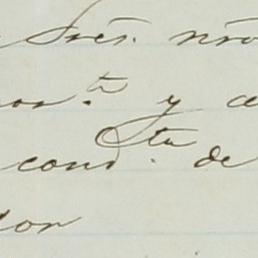 Sres. nro
mor.ta y a
Sta
cond. de
dor